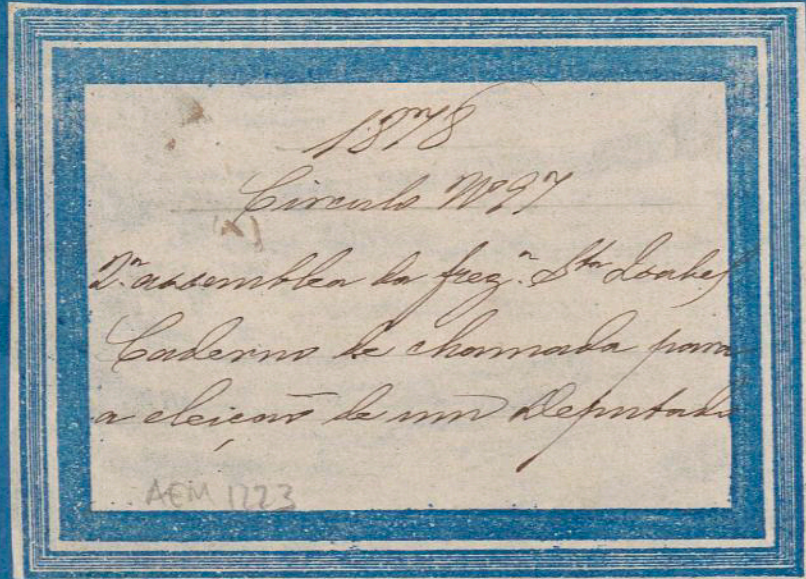 1878
Circulo Nº 97
(x)
2ª assemblea da fregª. Stª Isabel
Caderno de chamada para
a eleiçaõ de um Deputado
AEM 1223